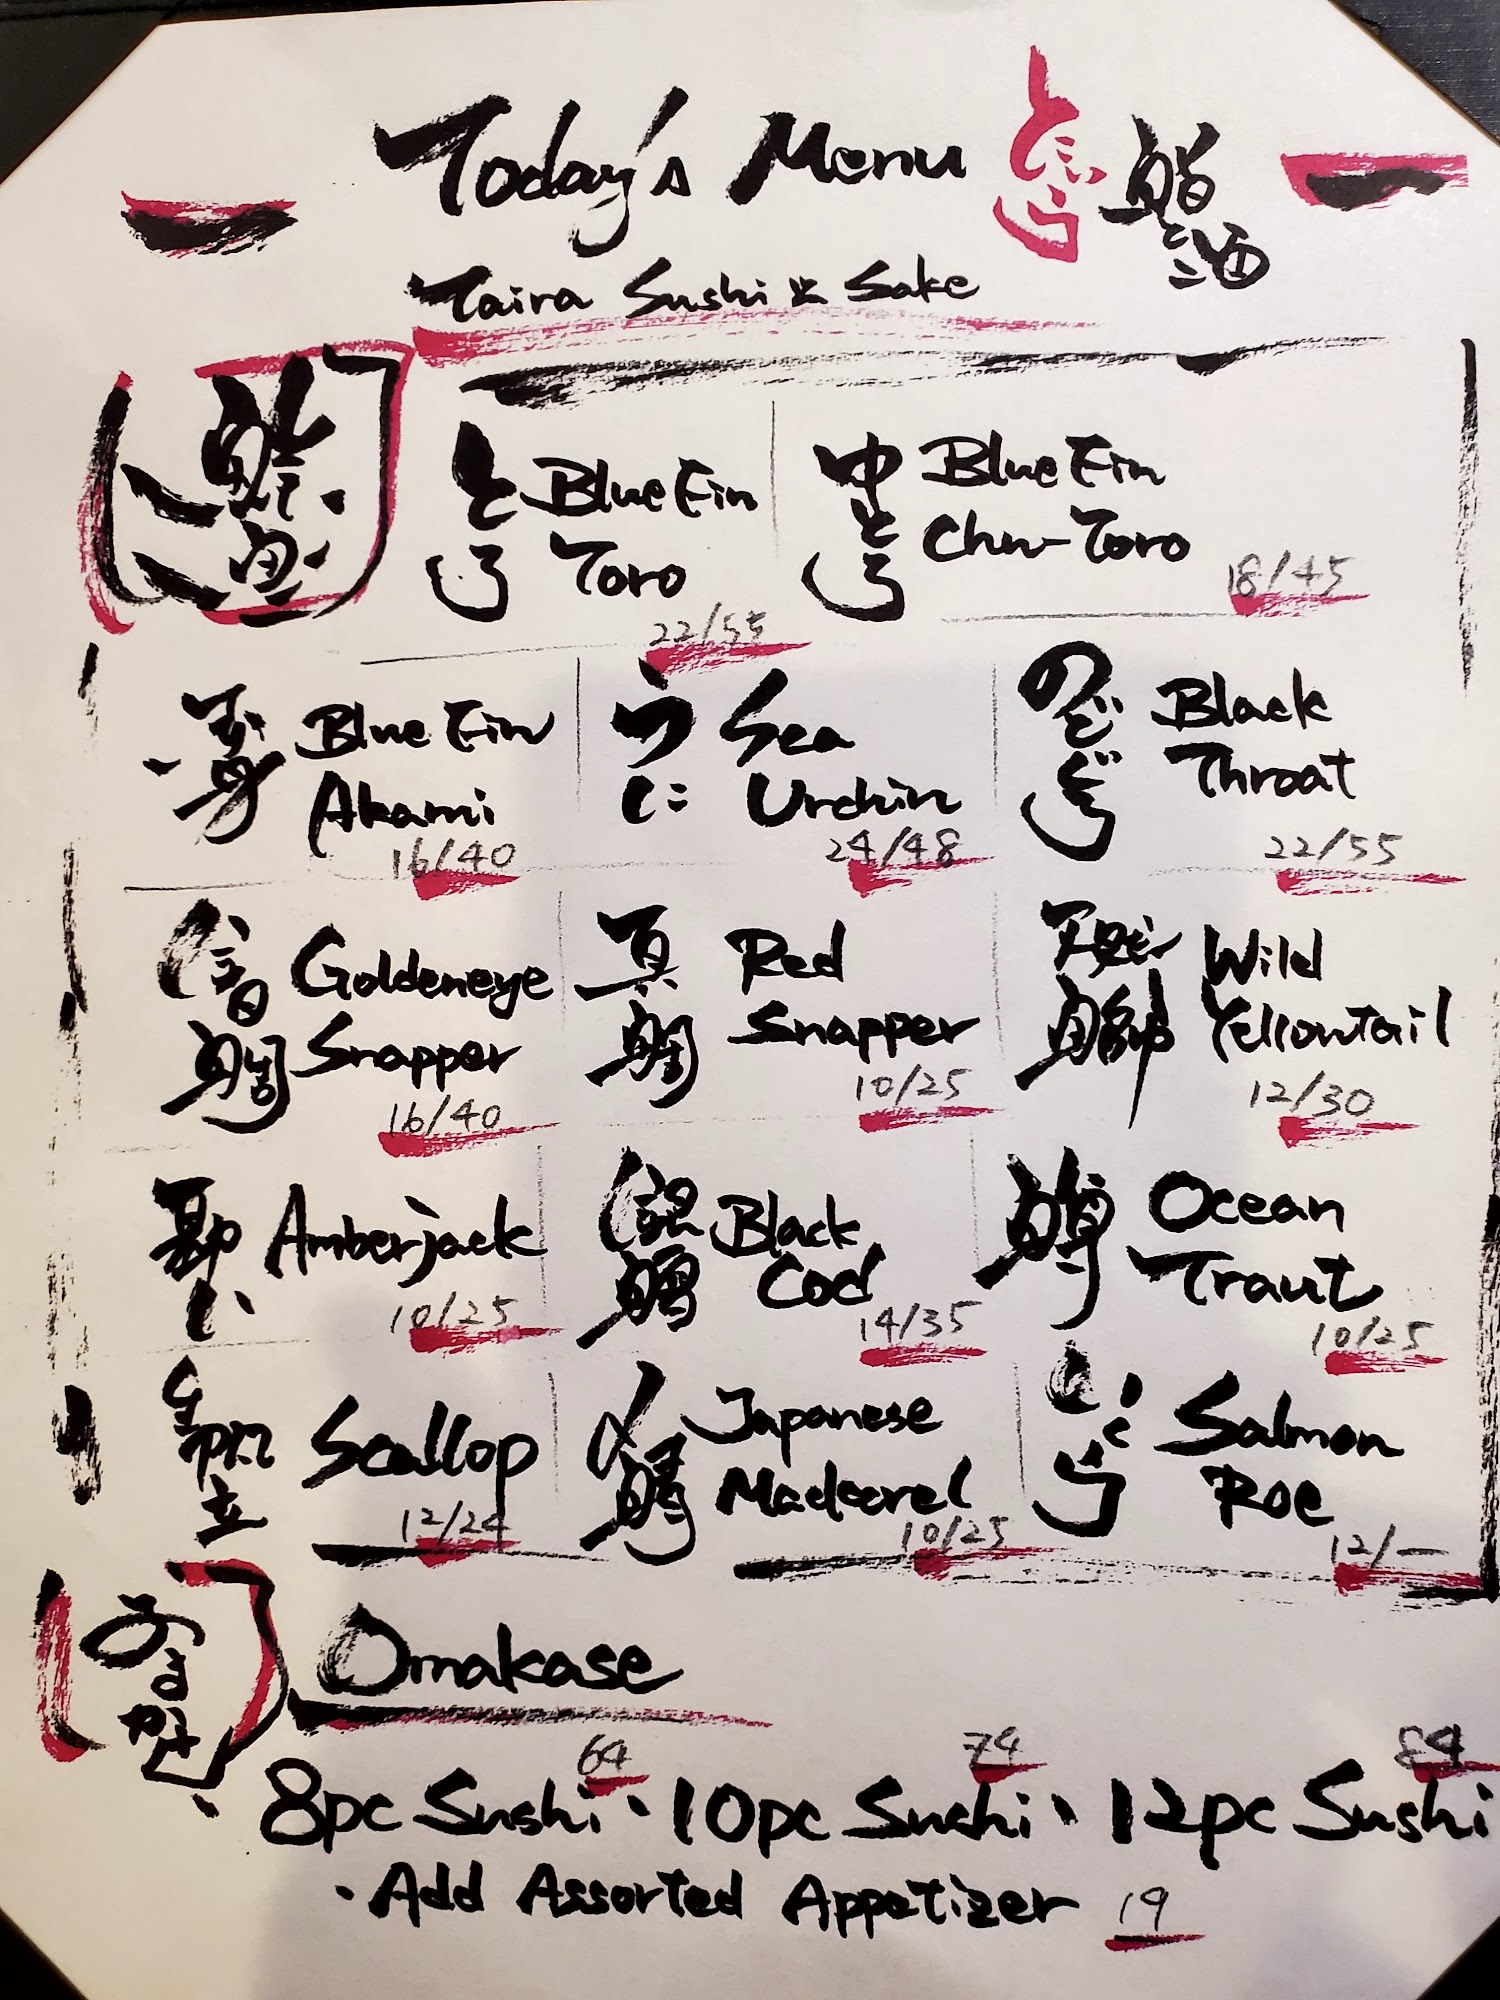 Today's Menu
鮨と酒
Taira Sushi & Sake
鮮魚
とろ
BlueFin
Toro
22/55
中とろ
BlueFin
Chu-Toro
18/45
赤身
BlueFin
Akami
16/40
うに
Sea
Urchin
24/48
のどぐろ
Black
Throat
22/55
Goldeneye
Snapper
16/40
真鯛
Red
Snapper
10/25
Wild
Yellowtail
12/30
Amberjack
10/25
銀鱈
Black
Cod
14/35
鱒
Ocean
Traut
10/25
帆立
Scallop
12/24
〆鯖
Japanese
Mackerel
10/25
いくら
Salmon
Roe
12/—
おまかせ
Omakase
64
74
84
8pc Sushi、10pc Sushi、12pc Sushi
・Add Assorted Appetizer 19